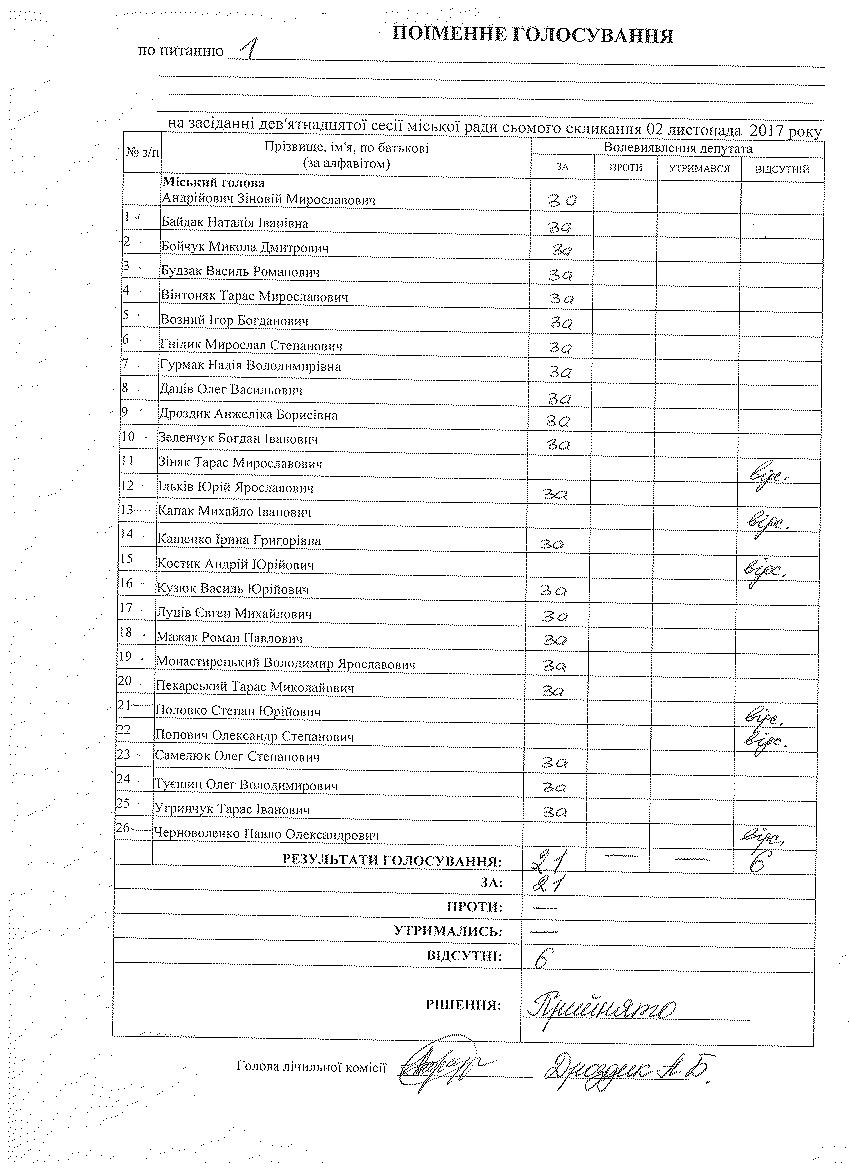 ПОІМЕННЕ ГОЛОСУВАННЯ
по питанню 1
на засіданні дев'ятнадцятої сесії міської ради сьомого скликання 02 листопада 2017 року
№ з/п Прізвище, ім'я, по батькові (за алфавітом) Волевиявлення депутата
ЗА ПРОТИ УТРИМАВСЯ ВІДСУТНІЙ
Міський голова
Андрійович Зіновій Мирославович за
1 Байдак Наталія Іванівна за
2 Бойчук Микола Дмитрович за
3 Будзак Василь Романович за
4 Вінтоняк Тарас Мирославович за
5 Возний Ігор Богданович за
6 Гнідик Мирослав Степанович за
7 Гурмак Надія Володимирівна за
8 Даців Олег Васильович за
9 Дроздик Анжеліка Борисівна за
10 Зеленчук Богдан Іванович за
11 Зіняк Тарас Мирославович відс.
12 Ільків Юрій Ярославович за
13 Капак Михайло Іванович відс.
14 Кащенко Ірина Григорівна за
15 Костик Андрій Юрійович відс.
16 Кузюк Василь Юрійович за
17 Луців Євген Михайлович за
18 Мажак Роман Павлович за
19 Монастирецький Володимир Ярославович за
20 Пекарський Тарас Миколайович за
21 Половко Степан Юрійович відс.
22 Попович Олександр Степанович відс.
23 Самелюк Олег Степанович за
24 Олег Володимирович за
25 Угринчук Тарас Іванович за
26 Черноволенко Павло Олександрович відс.
РЕЗУЛЬТАТИ ГОЛОСУВАННЯ: 21 — — 6
ЗА: 21
ПРОТИ: —
УТРИМАЛИСЬ: —
ВІДСУТНІ: 6
РІШЕННЯ: Прийнято
Голова лічильної комісії Дроздик А. Б.